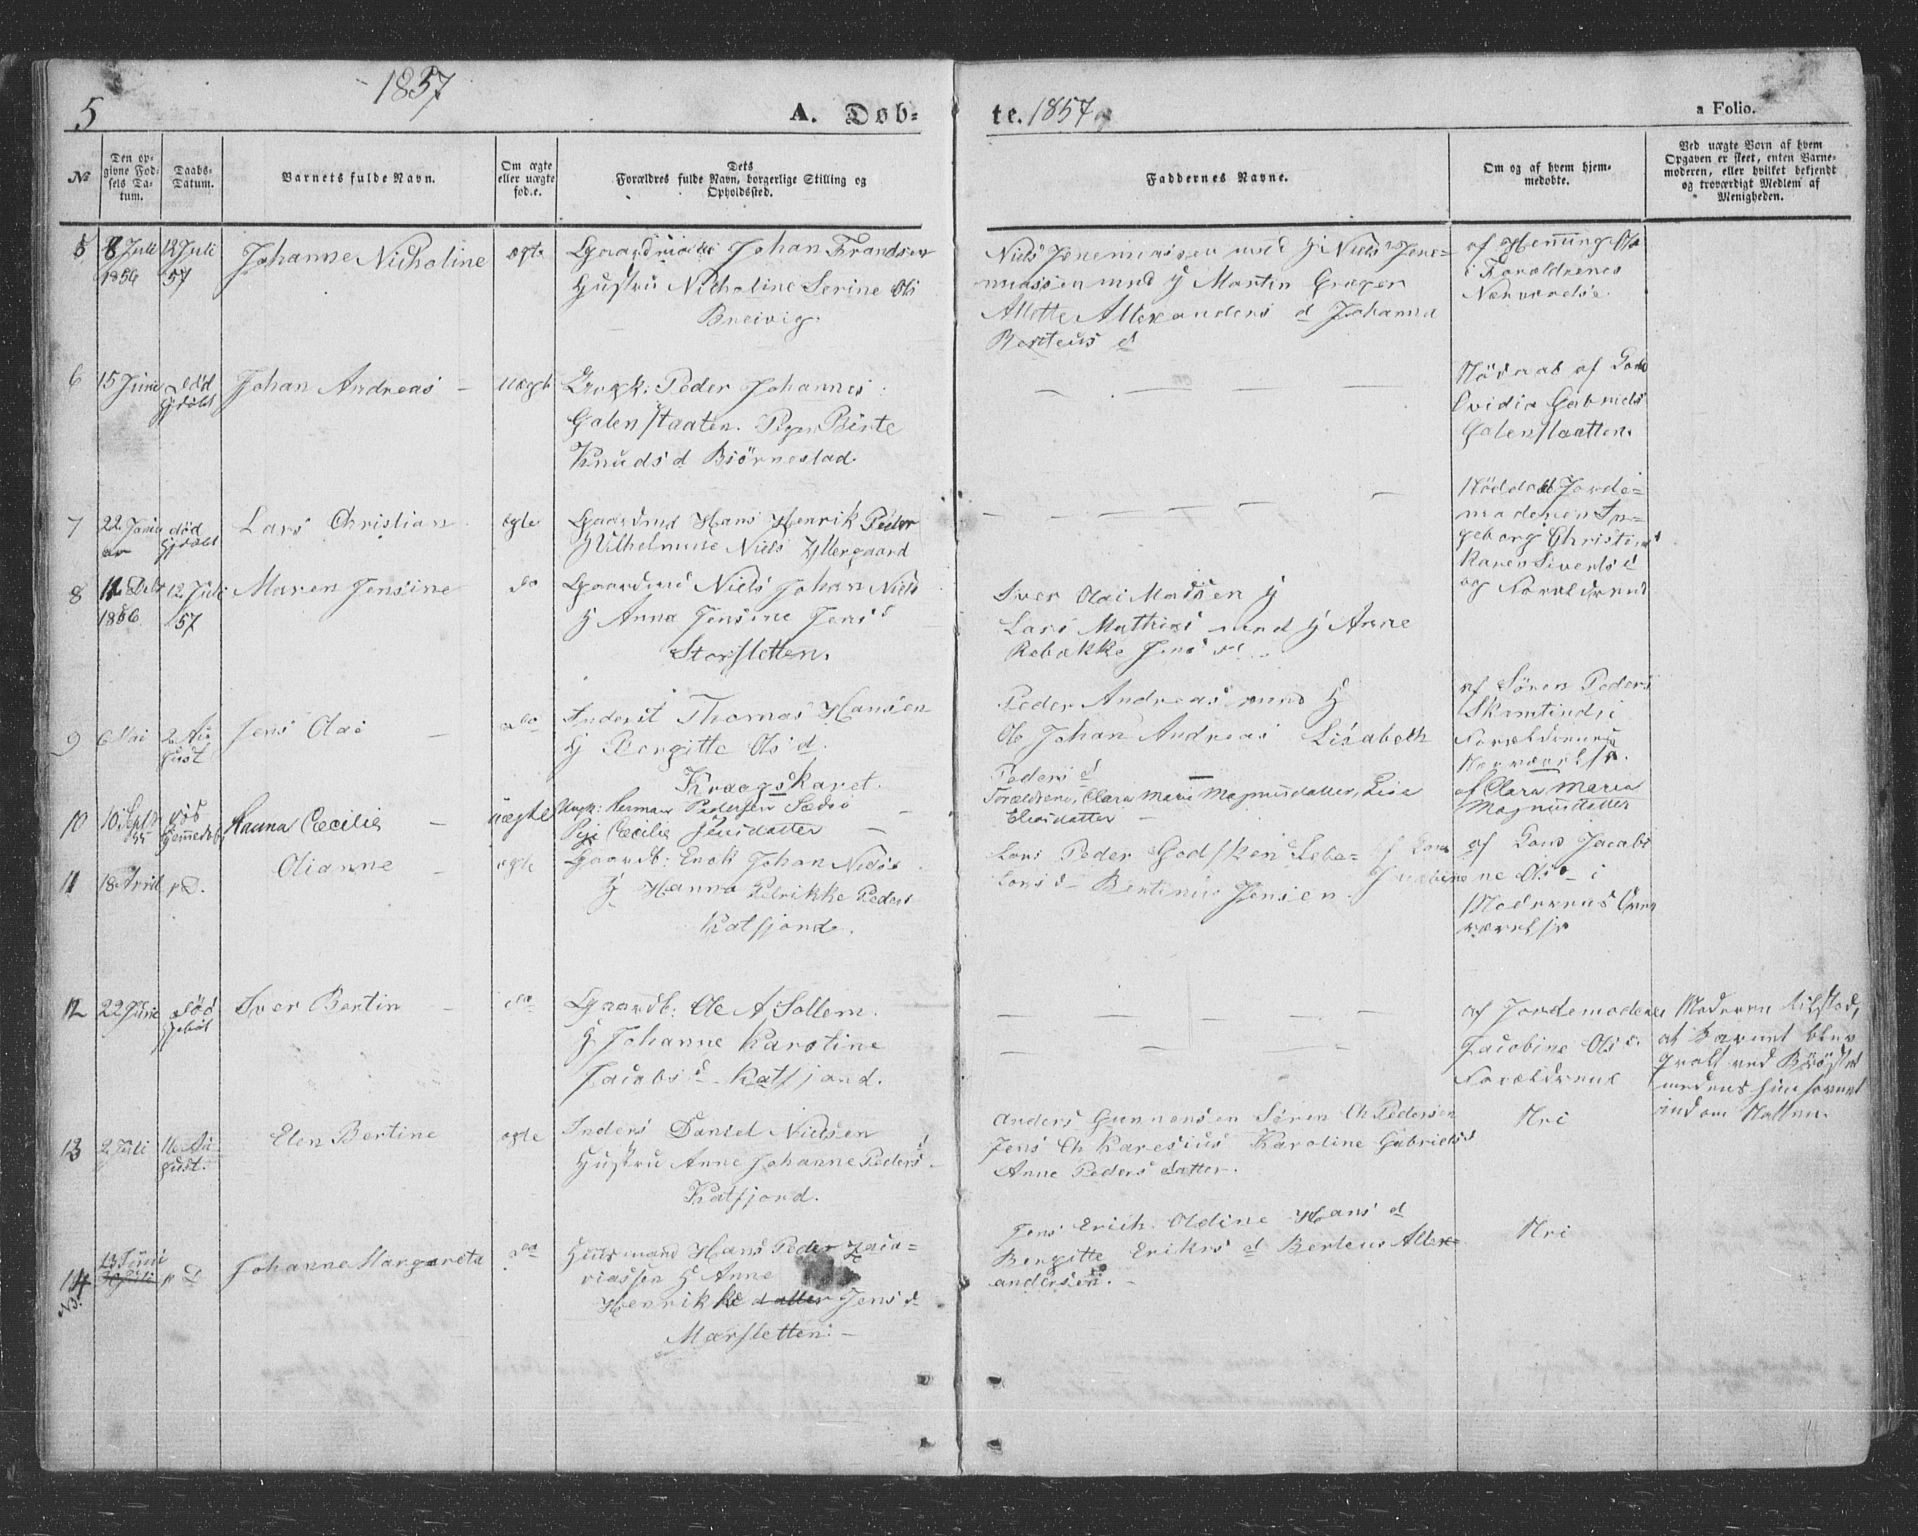 5
1857
A. Døb-
te. 1857
a Folio.
No
Den op-
givne Fød-
sels Da-
tum.
Daabs-
Datum.
Barnets fulde Navn.
Om ægte
eller uægte
fød.e.
Dets
Forældres fulde Navn, borgerlige Stilling og
Opholdssted.
Faddernes Navne.
Om og af hvem hjem-
medøbte.
Ved uægte Børn af hvem
Opgaven er skeet, enten Barne-
moderen, eller hvilket bekjendt
og troværdigt Medlem af
Menigheden.
5
8 Juli
1856
12 Juli
57
Johanne Nicholine
ægte
Johan Frandsen
Hustru Nicholine Serine Ols
Breivig.
Niels Jeremiassen und H Niels Jere-
miassen und H Martin Greger
Alette Allexanders d Johanna
Berteus d
af Henning
i Forældrenes
Nærværelse.
6
15 Juni
død
Johan Andreas
uægte
Ungk: Peder Johannes
Galenstaaten. Pigen Birte
Knuds d Biörnestad
Nödaab af
Ovidia Gabriels
Galenstaatten.
7
22 Juni
død
Lars Christian
ægte
Gaardmd Hans Henrik Peder
H Vilhelmine Niels Yttergaard
Nöddaab Jorde-
moderen In-
geborg Christine
Karen Siverts d
og Forældrene
8
1856
12 Juli
57
Maren Jensine
do
Gaardmd Niels Johan Niels
H Anna Jensine Jens
Storsletten.
Iver Olai Madsen H
Lars Mathias und H Anne
Rebække Jens d
9
6 Mai
2 Au
gust
Jens Olai
do
Inderst Thomas Hansen
H Bergitte Ols d.
Kraagskaret.
Peder Andreas und H
Ole Johan Andreas Lisabeth
Peders d
af Sören Peders
Skamtind i
Forældrenes
Nærværelse.
10
10 Septr
55
død
Hanna Cæcilie
uægte
Ungk: Herman Pedersen
Pige Cæcilie Jensdatter
Forældrene, Clara Marie Magnusdatter, Lise
Eliasdatter
af Clara Maria
Magnusdatter
11
18 April
p D.
Olianne
ægte
Gaardb: Enok Johan Niels
H Hanna Petrikke Peders
Katfjord.
Lars Peder Godsken
Lars d Bertinus Jensen
af Jacobi
ne Ols d i
Moderens
12
22 Juni
død
Iver Bertin
do
Gaardb: Ole A Sollem.
H Johanne Karotine
Jacobs d Katfjord.
af Jordemoderen
Jacobine Ols d.
Forældrene
Moderen tilstod,
at Barnet blev
qvalt ved Bröstet
medens hun sovnet
ind om Natten.
13
2 Juli
16 Au-
gust.
Elen Bertine
ægte
Inders Daniel Nielsen
Hustru Anne Johanne Peders d
Katfjord.
Anders Gunnersen Sören Ch Pedersen
Jens Ch Karesius Karoline Gabriels d
Anne Peders datter.
Nei
14
13 Juni
p D
Johanne Margareta
do
Husmand Hans Peder Zaca-
riassen H Anne
Henrikke datter Jens d
Marsletten.
Jens Erich Oldine Hans d
Bergitte Eriks d Berteus Allex-
andersen.
Nei